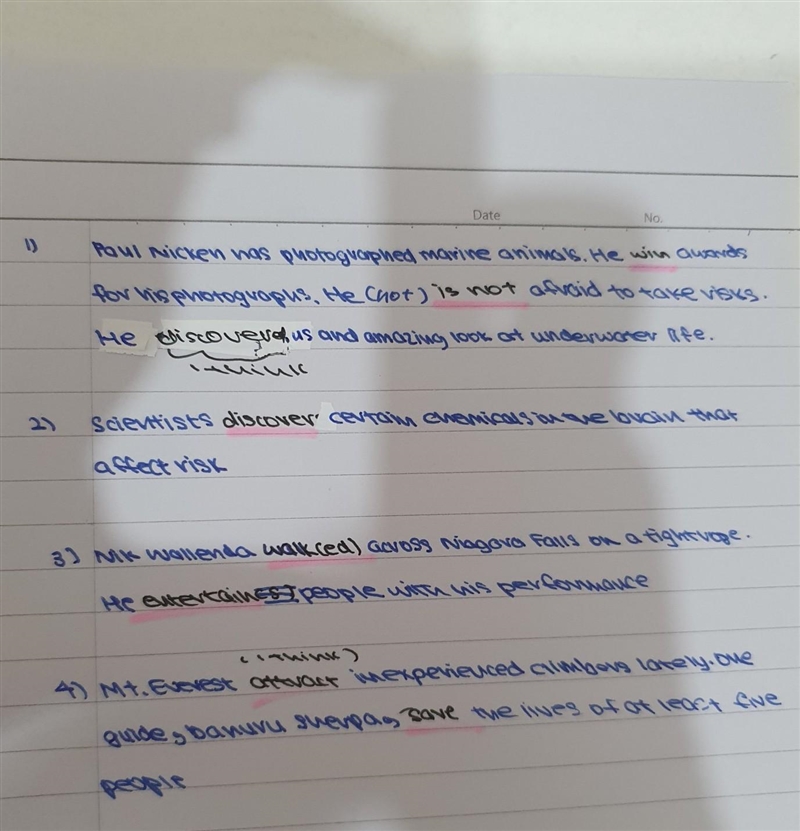 Date No.
1) Paul Nicken has photographed marine animals. He win awards
for his photographs. He (not) is not afraid to take risks.
He discovered us and amazing look at underwater life.
I think
2) Scientists discover certain chemicals in the brain that
affect risk
3) Nik Wallenda walk(ed) across Niagara Falls on a tightrope.
He entertain people with his performance
(I think)
4) Mt. Everest attract inexperienced climbers lately. One
guide, Danuru Sherpa, save the lives of at least five
people